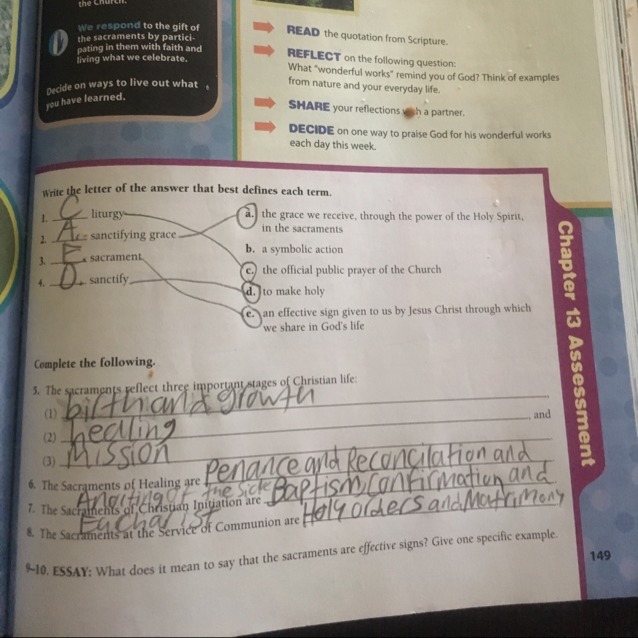 the Church.
We respond to the gift of
the sacraments by partici-
pating in them with faith and
living what we celebrate.
Decide on ways to live out what
you have learned.
READ the quotation from Scripture.
REFLECT on the following question:
What "wonderful works" remind you of God? Think of examples
from nature and your everyday life.
SHARE your reflections with a partner.
DECIDE on one way to praise God for his wonderful works
each day this week.
Write the letter of the answer that best defines each term.
1. C liturgy
2. A sanctifying grace
3. E sacrament
4. D sanctify
a. the grace we receive, through the power of the Holy Spirit,
in the sacraments
b. a symbolic action
c. the official public prayer of the Church
d. to make holy
e. an effective sign given to us by Jesus Christ through which
we share in God's life
Chapter 13 Assessment
Complete the following.
5. The sacraments reflect three important stages of Christian life:
(1) birth and growth
(2) healing , and
(3) Mission
6. The Sacraments of Healing are Penance and Reconcilation and
Anoiting Of the Sick
7. The Sacraments of Christian Initiation are Baptism, Confirmation and
Eucharist
8. The Sacraments at the Service of Communion are Holy orders and Matrimony
9-10. ESSAY: What does it mean to say that the sacraments are effective signs? Give one specific example.
149